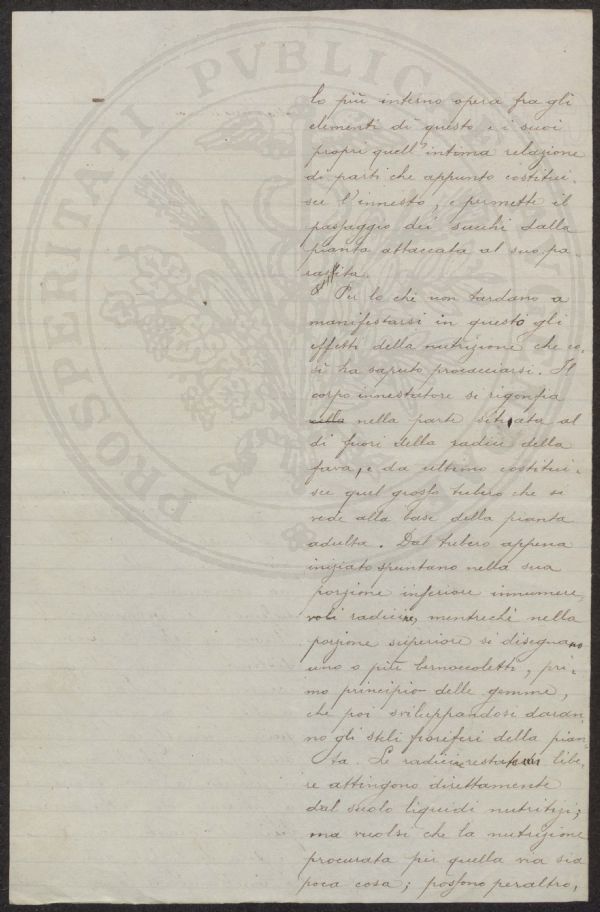 PROSPERITATI PVBLICAE
lo più interno opera fra gli
elementi di questo e i suoi
propri quell'intima relazione
di parti che appunto costitui-
sce l'innesto, e permette il
passaggio dei succhi dalla
pianta attaccata al suo pa-
rassita.
Per lo che non tardano a
manifestarsi in questo gli
effetti della nutrizione che co-
sì ha saputo procacciarsi. Il
corpo innestatore si rigonfia
nella parte situata al
di fuori della radice della
fava, e da ultimo costitui-
sce quel grosso tubero che si
vede alla base della pianta
adulta. Dal tubero appena
iniziato spuntano nella sua
porzione inferiore innumere-
voli radicine, mentrechè nella
porzione superiore si disegnano
uno o più bernoccoletti, pri-
mo principio delle gemme,
che poi sviluppandosi daran-
no gli steli fioriferi della pian-
ta. Le radicine libe-
re attingono direttamente
dal suolo liquidi nutritizi;
ma vuolsi che la nutrizione
procurata per quella via sia
poca cosa; possono peraltro,